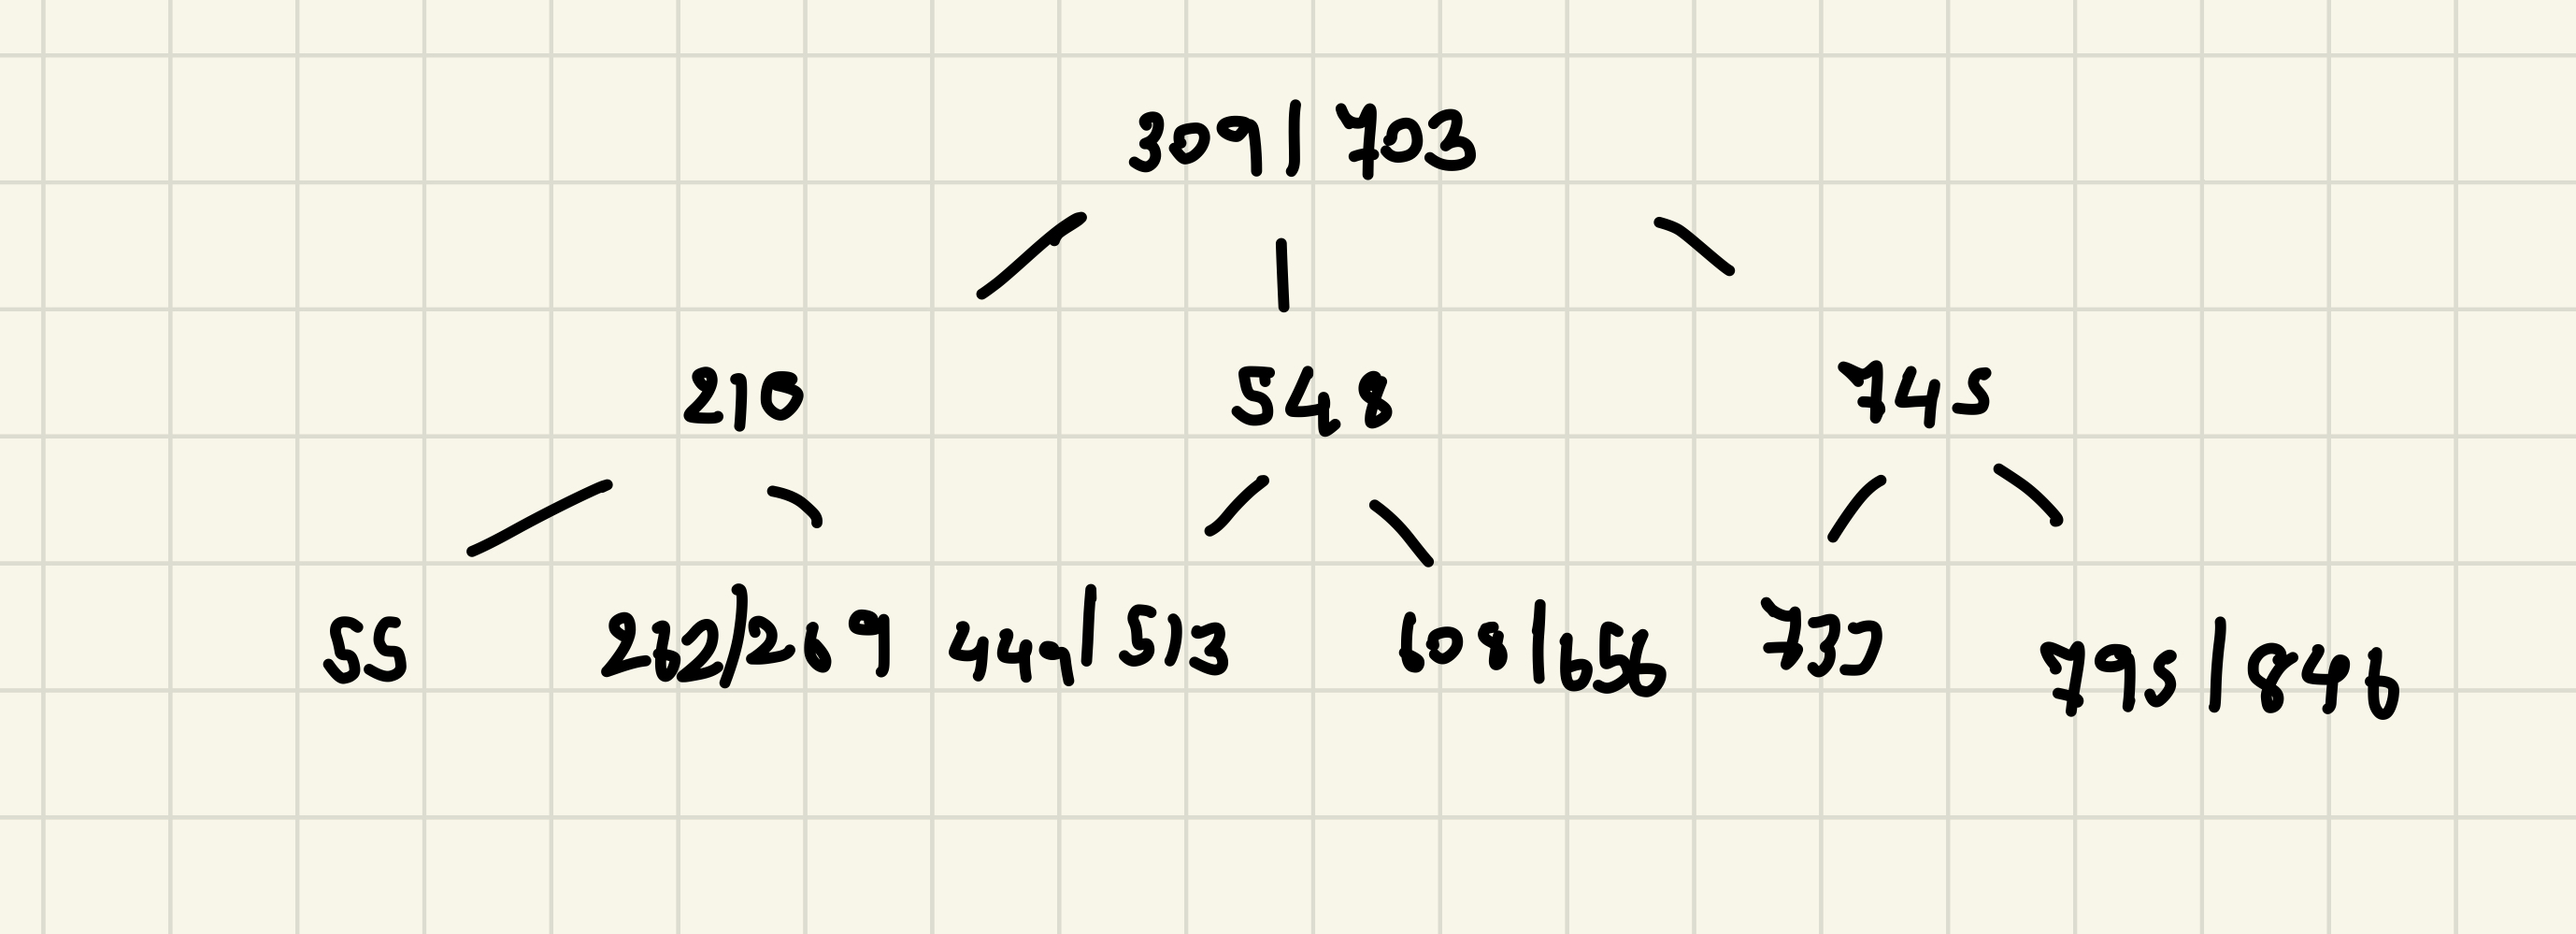 309 | 703
210 548 745
55 262/269 449 | 513 608 | 656 737 795 | 846